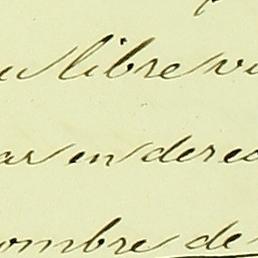 u libre vi
ar en derec
ombre de